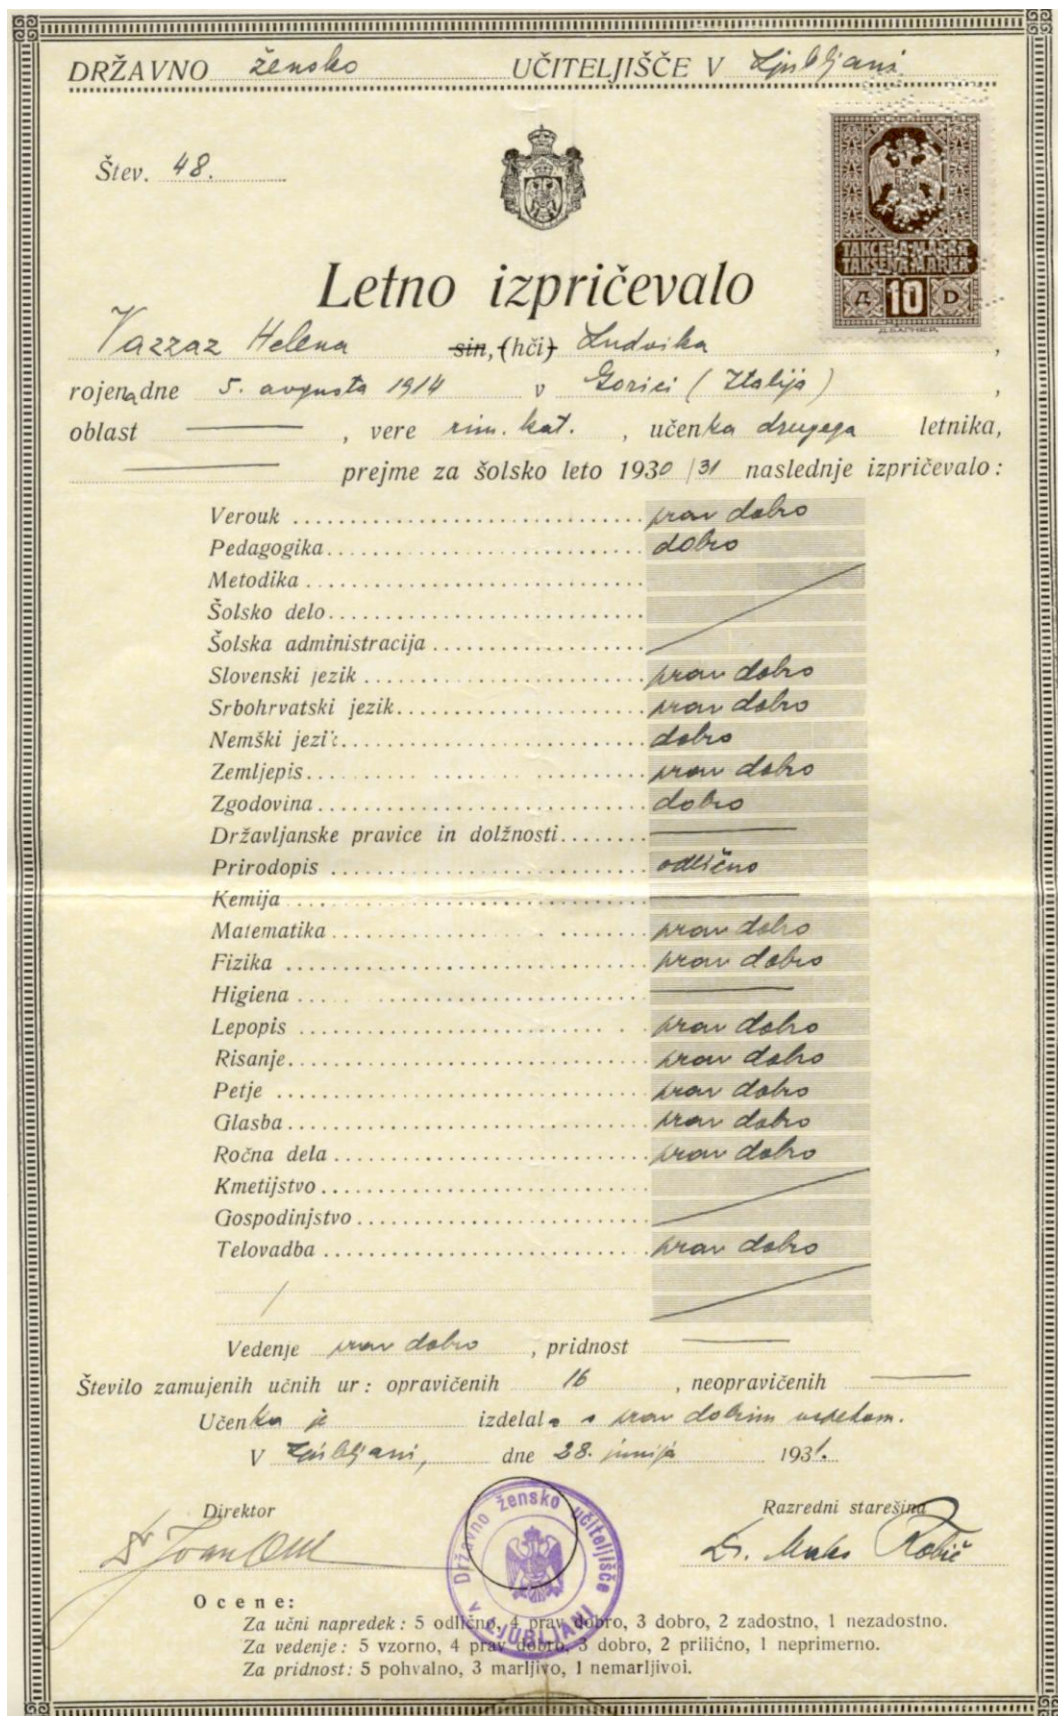 DRŽAVNO žensko UČITELJIŠČE V Ljubljani.
Štev. 48.
ТАКСЕНА МАРКА
TAKSENA MARKA
Д 10 D
Letno izpričevalo
Vazzaz Helena sin, (hči) Ludvika,
rojena dne 5. avgusta 1914 v Gorici (Italija),
oblast ———, vere rim. kat., učenka drugega letnika,
——— prejme za šolsko leto 1930/31 naslednje izpričevalo:
Verouk prav dobro
Pedagogika dobro
Metodika
Šolsko delo
Šolska administracija
Slovenski jezik prav dobro
Srbohrvatski jezik prav dobro
Nemški jezik dobro
Zemljepis prav dobro
Zgodovina dobro
Državljanske pravice in dolžnosti ———
Prirodopis odlično
Kemija ———
Matematika prav dobro
Fizika prav dobro
Higiena ———
Lepopis prav dobro
Risanje prav dobro
Petje prav dobro
Glasba prav dobro
Ročna dela prav dobro
Kmetijstvo
Gospodinjstvo
Telovadba prav dobro
Vedenje prav dobro, pridnost ———
Število zamujenih učnih ur: opravičenih 16, neopravičenih ———
Učenka je izdelala s prav dobrim uspehom.
V Ljubljani, dne 28. junija 1931.
Direktor
Razredni starešina
Dr. Maks Robič
Državno žensko učiteljišče v LJUBLJANI
Ocene:
Za učni napredek: 5 odlično, 4 prav dobro, 3 dobro, 2 zadostno, 1 nezadostno.
Za vedenje: 5 vzorno, 4 prav dobro, 3 dobro, 2 prilično, 1 neprimerno.
Za pridnost: 5 pohvalno, 3 marljivo, 1 nemarljivoi.